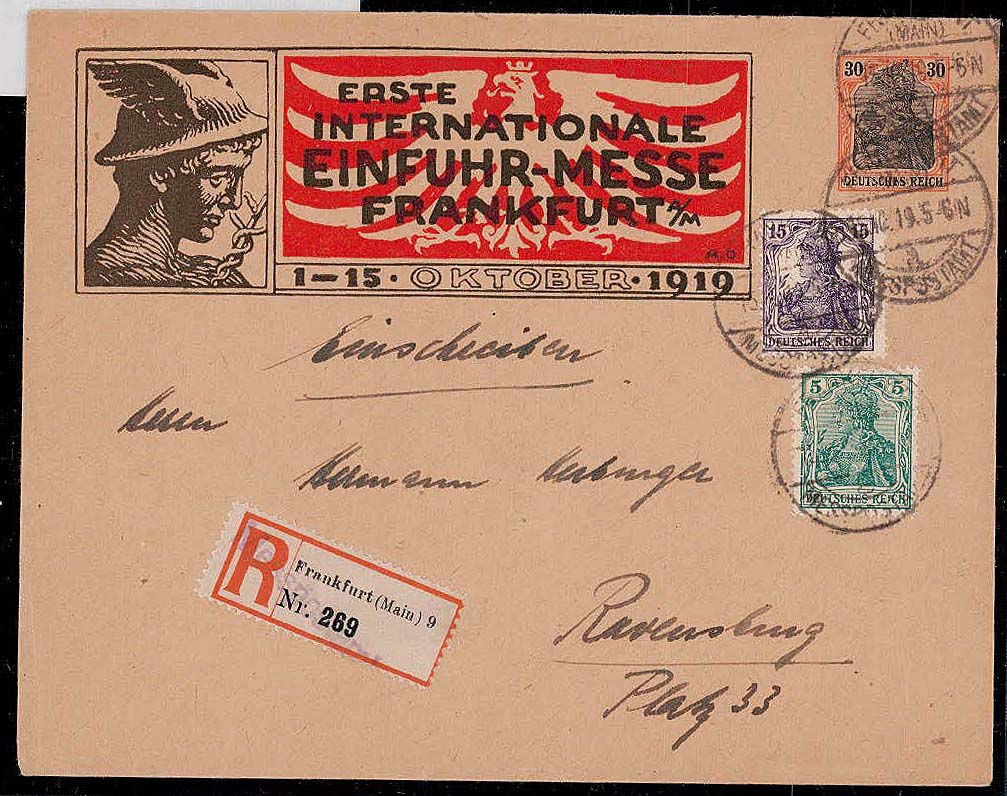 ERSTE
INTERNATIONALE
EINFUHR-MESSE
FRANKFURT a/M
M.O
1-15 · OKTOBER · 1919
(MAIN)
5-6N
30 30
DEUTSCHES REICH
10.19.5-6N
a
15 15
DEUTSCHES REICH
5 5
DEUTSCHES REICH
Einschreiben
Herrn
Hermann
R
Frankfurt (Main) 9
Nr. 269
Ravensburg
Platz 33